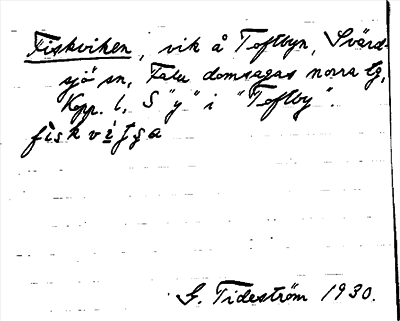 Fiskviken, vik å Toftbyn, Svärd-
sjö sn, Falu domsagas norra tg,
Kopp. l, S "y" i "Toftby".
G. Tideström 1930.